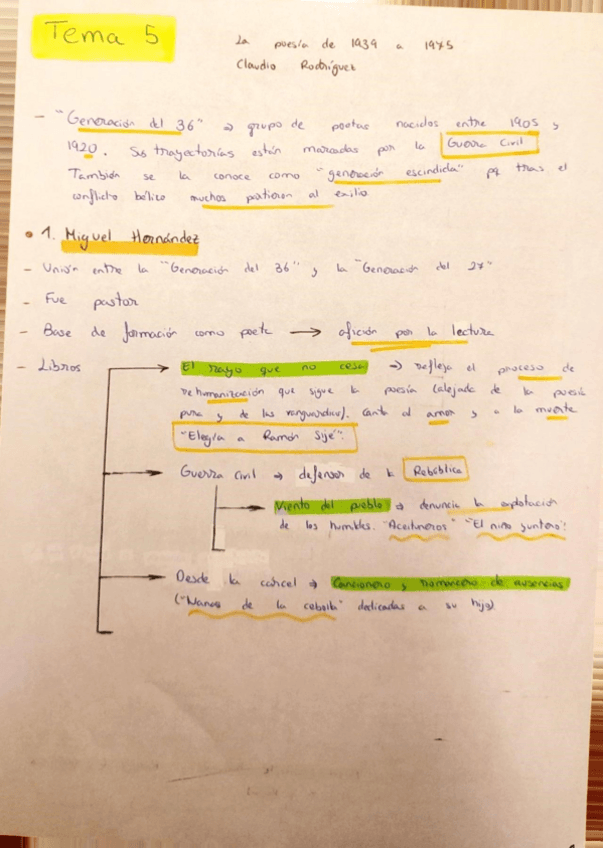 Tema 5
La poesía de 1939 a 1975
Claudio Rodríguez
- "Generación del 36" → grupo de poetas nacidos entre 1905 y
1920. Sus trayectorias están marcadas por la Guerra Civil
También se la conoce como "generación escindida" pq tras el
conflicto bélico muchos partieron al exilio
• 1. Miguel Hernández
- Unión entre la "Generación del 36" y la "Generación del 27"
- Fue pastor
- Base de formación como poeta → afición por la lectura
- Libros → El rayo que no cesa → refleja el proceso de
rehumanización que sigue la poesía (alejada de la poesía
pura y de las vanguardias). Canta al amor y a la muerte
"Elegía a Ramón Sijé".
Guerra Civil → defensor de la República
Viento del pueblo → denuncia la explotación
de los humildes. "Aceituneros" "El niño yuntero".
Desde la cárcel → Cancionero y romancero de ausencias
("Nanas de la cebolla" dedicadas a su hijo)